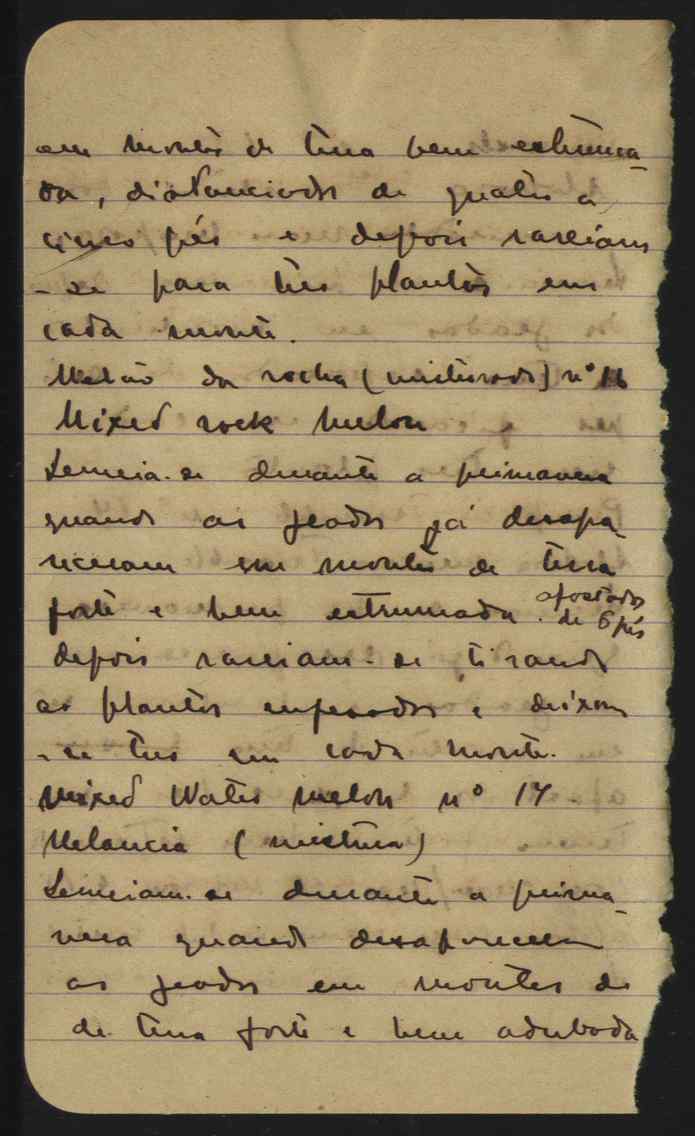 em montes de terra bem estruma-
da, distanciados de quatro a
cinco pés e depois rareiam
-se para tres plantas em
cada monte.
Melão da rocha (misturado) nº 16
Mixed rock melon
Semeia-se durante a primavera
quando as geadas já desapa-
receram em montes de terra
forte e bem estrumada afastados
de 6 pés
depois rareiam-se tirando
as plantas enfesadas e deixam
-se tres em cada monte.
Mixed Water melon nº 17
Melancia (mistura)
Semeiam-se durante a prima-
vera quando desaparecem
as geadas em montes de
de terra forte e bem adubada